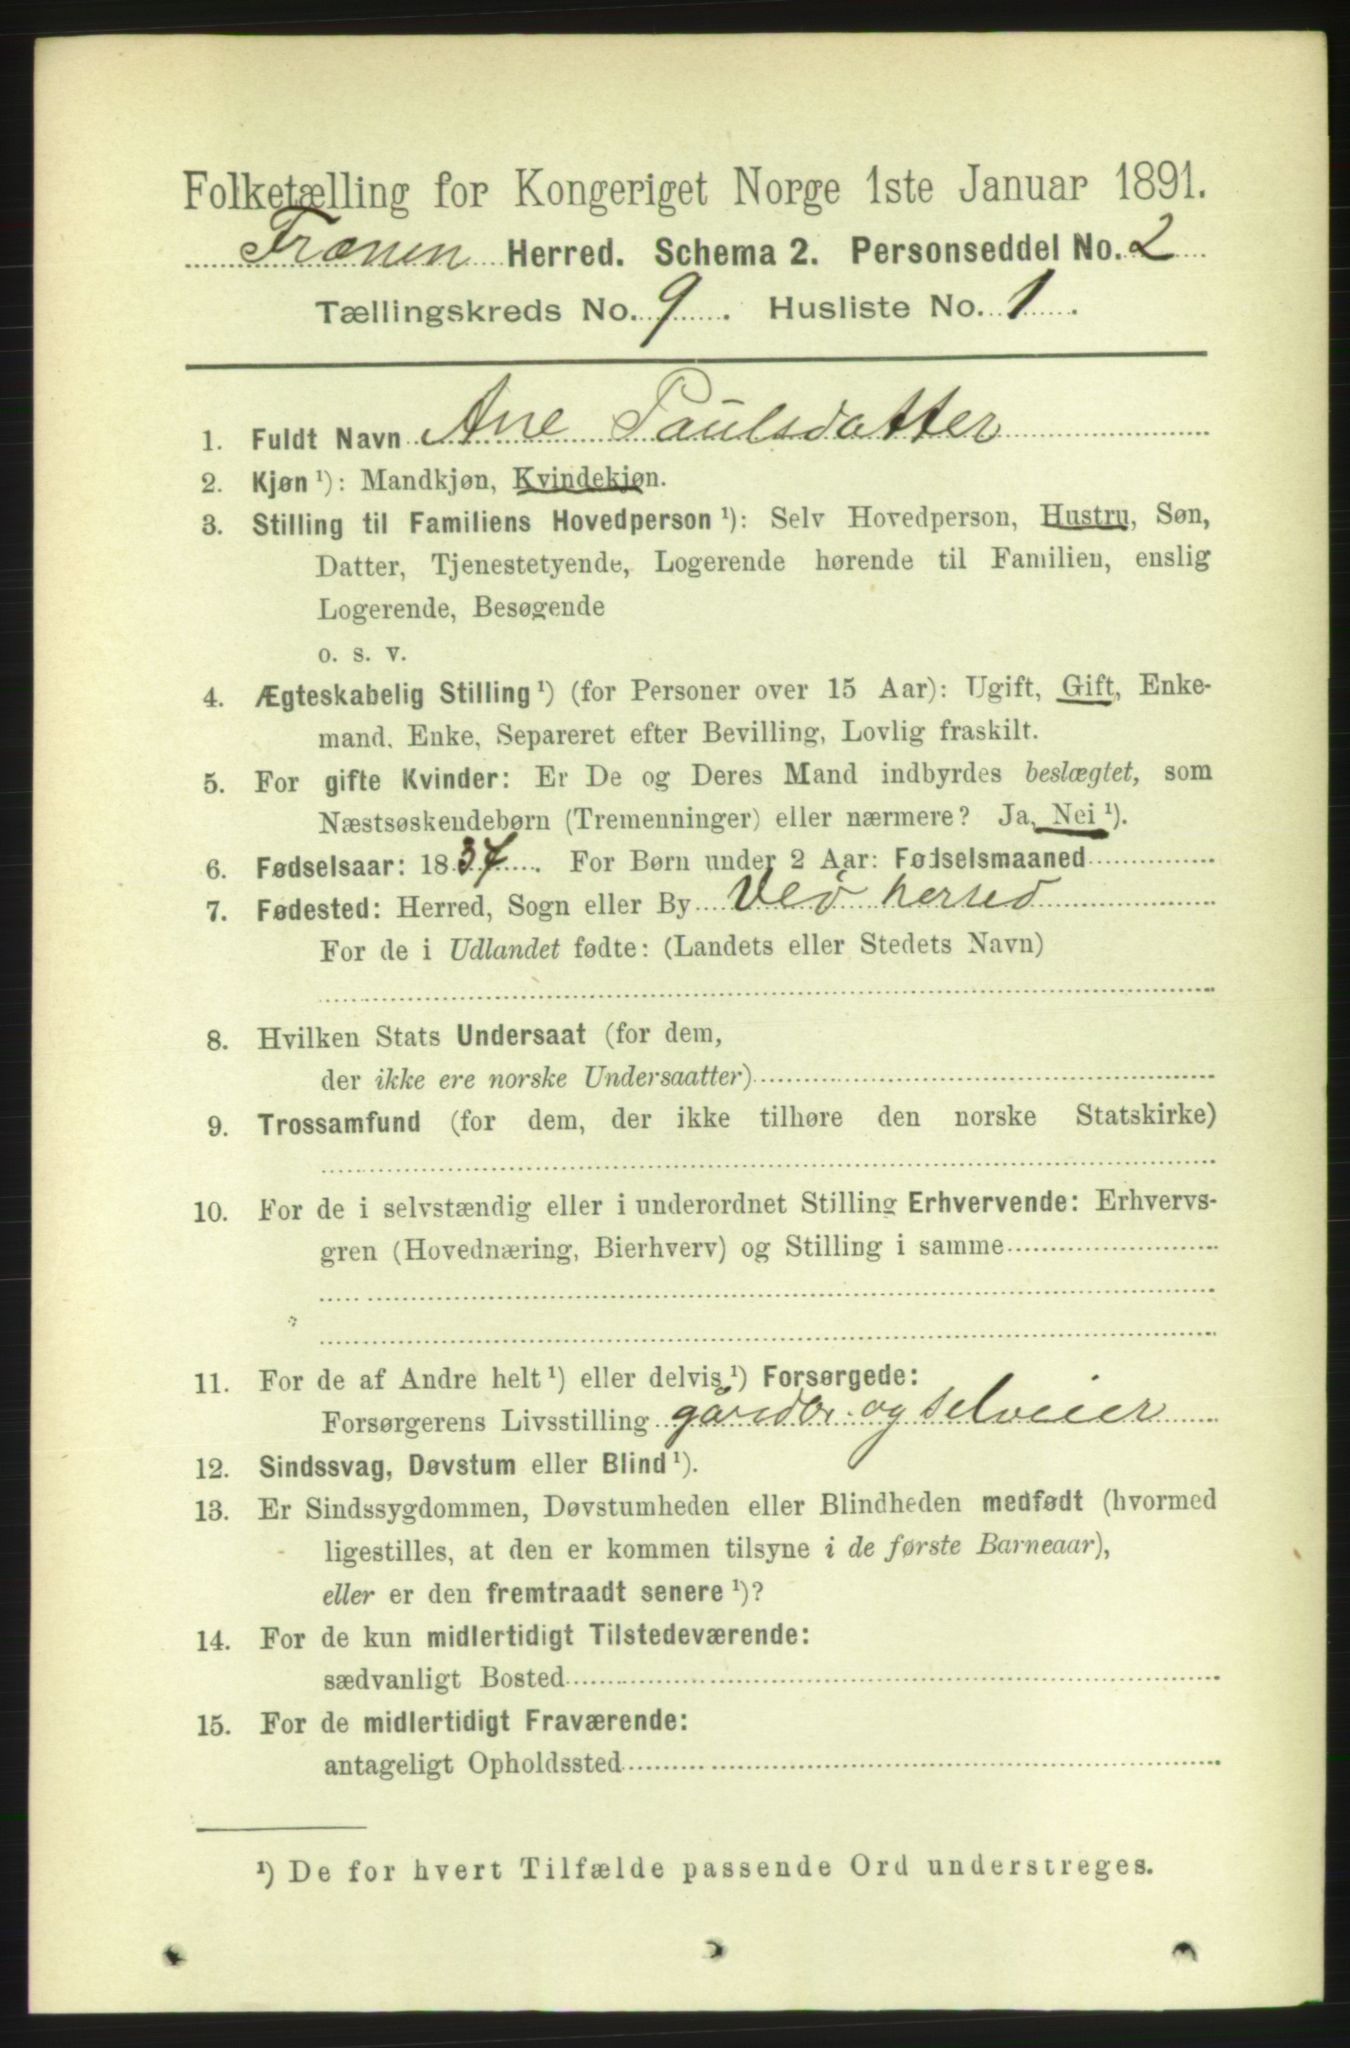 Folketælling for Kongeriget Norge 1ste Januar 1891.
Frænen Herred. Schema 2. Personseddel No. 2
Tællingskreds No. 9. Husliste No. 1.
1. Fuldt Navn Ane Paulsdatter
2. Kjøn ¹): Mandkjøn, Kvindekjøn.
3. Stilling til Familiens Hovedperson ¹): Selv Hovedperson, Hustru, Søn,
Datter, Tjenestetyende, Logerende hørende til Familien, enslig
Logerende, Besøgende
o. s. v.
4. Ægteskabelig Stilling ¹) (for Personer over 15 Aar): Ugift, Gift, Enke-
mand, Enke, Separeret efter Bevilling, Lovlig fraskilt.
5. For gifte Kvinder: Er De og Deres Mand indbyrdes beslægtet, som
Næstsøskendebørn (Tremenninger) eller nærmere? Ja, Nei ¹).
6. Fødselsaar: 1837. For Børn under 2 Aar: Fødselsmaaned
7. Fødested: Herred, Sogn eller By Veø herred
For de i Udlandet fødte: (Landets eller Stedets Navn)
8. Hvilken Stats Undersaat (for dem,
der ikke ere norske Undersaatter)
9. Trossamfund (for dem, der ikke tilhøre den norske Statskirke)
10. For de i selvstændig eller i underordnet Stilling Erhvervende: Erhvervs-
gren (Hovednæring, Bierhverv) og Stilling i samme
11. For de af Andre helt ¹) eller delvis ¹) Forsørgede:
Forsørgerens Livsstilling gårdbr. og selveier
12. Sindssvag, Døvstum eller Blind ¹).
13. Er Sindssygdommen, Døvstumheden eller Blindheden medfødt (hvormed
ligestilles, at den er kommen tilsyne i de første Barneaar),
eller er den fremtraadt senere ¹)?
14. For de kun midlertidigt Tilstedeværende:
sædvanligt Bosted
15. For de midlertidigt Fraværende:
antageligt Opholdssted
¹) De for hvert Tilfælde passende Ord understreges.